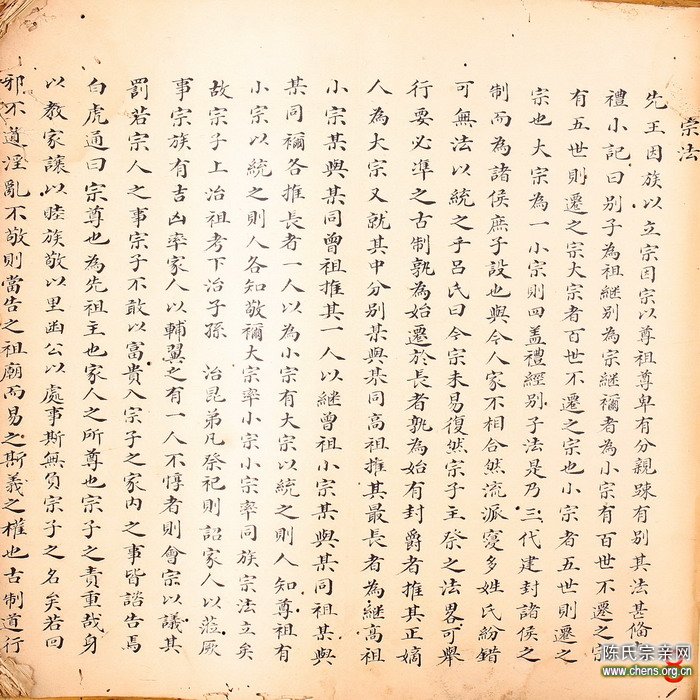 宗法
先王因族以立宗因宗以尊祖尊卑有分親踈有別其法甚俻
禮小記曰別子為祖継別為宗継禰者為小宗有百世不遷之宗
有五世則遷之宗大宗者百世不遷之宗也小宗者五世則遷之
宗也大宗為一小宗則四盖禮經別子法是乃三代建封諸侯之
制而為諸侯庶子設也與今人家不相合然流派寖多姓氏紛錯
可無法以統之乎吕氏曰今宗未易復然宗子主祭之法畧可舉
行要必準之古制孰為始遷於長者孰為始有封爵者推其正嫡
人為大宗又就其中分別某與某同高祖推其最長者為継高祖
小宗某與某同曾祖推其一人以継曾祖小宗某與某同祖某與
某同禰各推長者一人以為小宗有大宗以統之則人知尊祖有
小宗以統之則人各知敬禰大宗率小宗小宗率同族宗法立矣
故宗子上治祖考下治子孫 治昆弟凡祭祀則詔家人以蒞厥
事宗族有吉凶率家人以輔翼之有一人不惇者則會宗以議其
罰若宗人之事宗子不敢以富貴入宗子之家内之事皆諮告焉
白虎通曰宗尊也為先祖主也家人之所尊也宗子之責重哉身
以教家讓以睦族敬以里凾公以處事斯無負宗子之名矣若回
邪不道淫亂不敬則當告之祖廟而易之斯義之權也古制道行
陈氏宗亲网
www.chens.org.cn